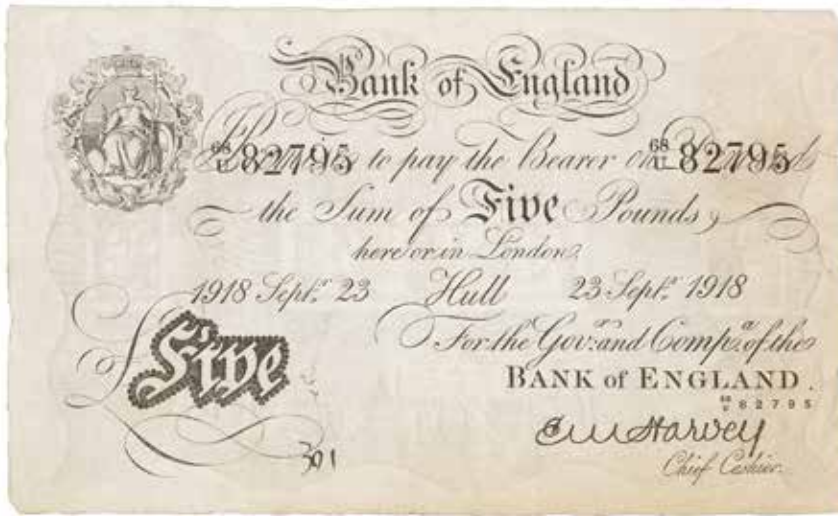 Bank of England
68/U 82795 to pay the Bearer on 68/U 82795
the Sum of Five Pounds,
here or in London.
1918 Septr. 23 Hull 23 Septr. 1918
For the Govr. and Compa. of the
BANK of ENGLAND.
68/U 82795
£Five
E M Harvey
301
Chief Cashier.